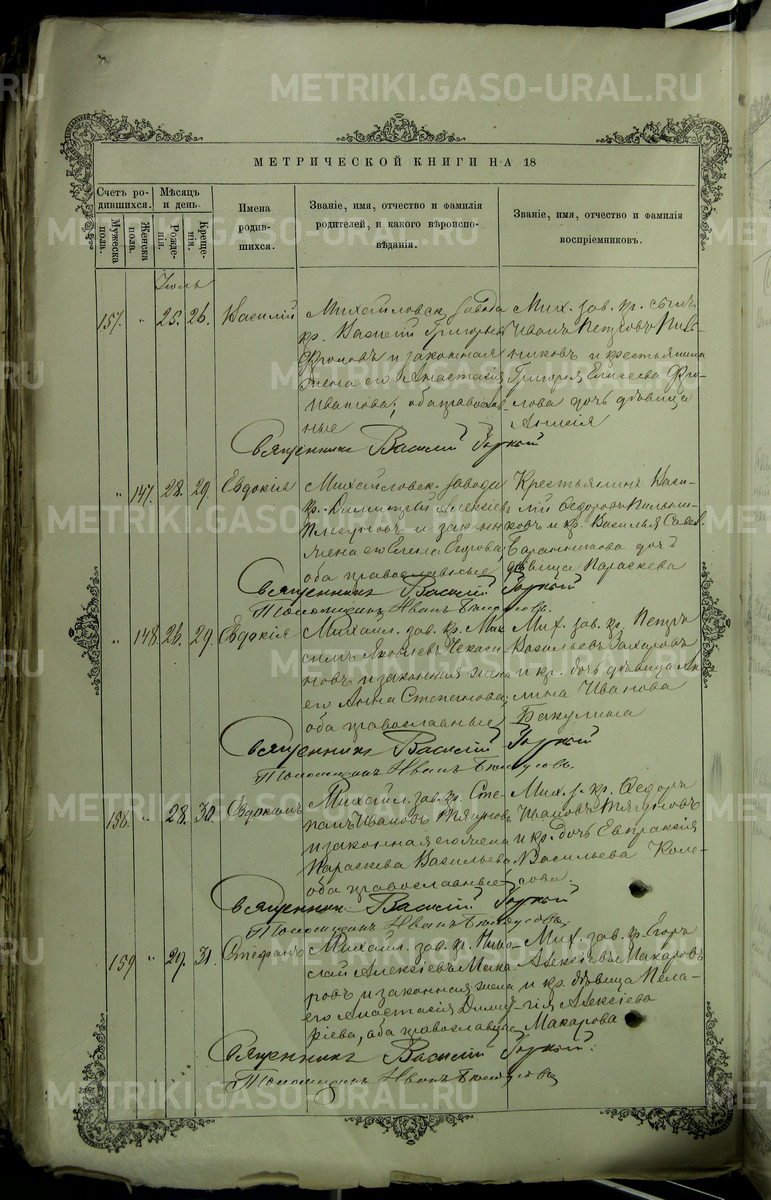 METRIKI.GASO-URAL.RU
МЕТРИЧЕСКОЙ КНИГИ НА 18
Счетъ родившихся.
Мужеска пола.
Женска пола.
Мѣсяцъ и день.
Рожденія.
Крещенія.
Имена родившихся.
Званіе, имя, отчество и фамилія родителей, и какого вѣроисповѣданія.
Званіе, имя, отчество и фамилія воспріемниковъ.
Іюль
157. " 25. 26. Василій
Михайловск. завода
кр. Василій Григорьев
Фроловъ и законная
жена его Анастасія
Иванова, оба православ-
ные
Мих. зав. кр. сынъ
Иванъ Петровъ
и крестьянина
Григорія Елисеева Фро-
лова дочь дѣвица
Священникъ Василій
" 147. 28. 29. Евдокія
Михайловск. завода
кр. Димитрій Алексіевъ
и законн
жена его Елена Егорова
оба православные
Крестьянинъ Васи-
лій Ѳедоровъ
и кр. Василья
дочь
дѣвица Параскева
Священникъ Василій
Иванъ
" 148. 26. 29. Евдокія
Михайл. зав. кр. Мак-
симъ Яковлевъ
и законная жена
его Анна Степанова,
оба православные
Мих. зав. кр. Петръ
Васильевъ Захаровъ
и кр. дочь дѣвица
Иванова
Бакулина
Священникъ Василій
Иванъ
158. " 28. 30. Евдокимъ
Михайл. зав. кр. Сте-
панъ Ивановъ Тягуновъ
и законная его жена
Параскева Васильева,
оба православные
Мих. з. кр. Ѳедоръ
Ивановъ Тягуновъ
и кр. дочь Евпраксія
Васильева Коле-
сова.
Священникъ Василій
Иванъ
159 " 29. 31. Стефанъ
Михайл. зав. кр. Нико-
лай Алексіевъ Мака-
ровъ и законная жена
его Анастасія Димит-
ріева, оба православные
Мих. зав. кр. Егоръ
Алексіевъ Макаровъ
и кр. дѣвица Пела-
гія Алексіева
Макарова
Священникъ Василій
Иванъ